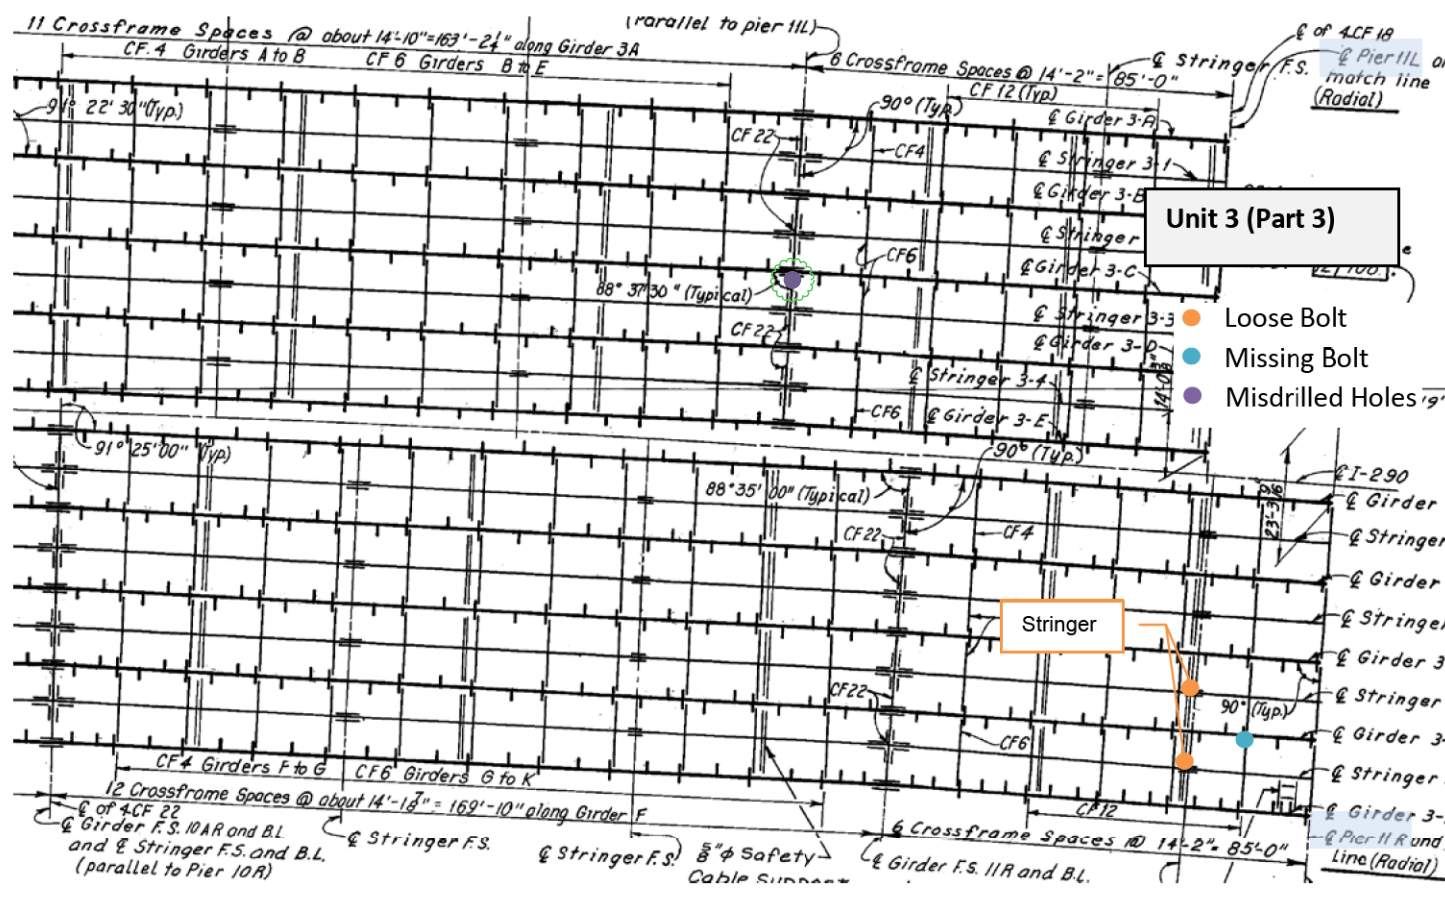 (Parallel to pier 11L)
11 Crossframe Spaces @ about 14'-10"=163'-2¼" along Girder 3A
CF.4 Girders A to B
CF 6 Girders B to E
6 Crossframe Spaces @ 14'-2"= 85'-0"
℄ Stringer F.S.
CF 12 (Typ.)
℄ of 4CF18
℄ Pier 11L
match line
(Radial)
91° 22' 30"(Typ.)
90° (Typ.)
℄ Girder 3-A
CF 22
CF4
℄ Stringer 3-1
℄ Girder 3-B
Unit 3 (Part 3)
℄ Stringer
CF6
℄ Girder 3-C
88° 37'30" (Typical)
℄ Stringer 3-3
Loose Bolt
CF 22
℄ Girder 3-D
Missing Bolt
14'-0⅜"
℄ Stringer 3-4
Misdrilled Holes
CF6
℄ Girder 3-E
91° 25' 00" (Typ)
90° (Typ.)
℄ I-290
88° 35' 00" (Typical)
℄ Girder
CF 22
CF4
℄ Stringer
℄ Girder
Stringer
℄ Stringer
℄ Girder 3
CF22
℄ Stringer
90° (Typ.)
CF6
℄ Girder 3-
℄ Stringer
CF4 Girders F to G
CF6 Girders G to K
12 Crossframe Spaces @ about 14'-1⅞" = 169'-10" along Girder F
CF12
℄ Girder 3-
℄ of 4CF 22
℄ Girder F.S. 10AR and B.L.
and ℄ Stringer F.S. and B.L.
(parallel to Pier 10R)
℄ Stringer F.S.
℄ Stringer F.S.
⅝"ϕ Safety
Cable Support
6 Crossframe Spaces @ 14'-2"= 85'-0"
℄ Girder F.S. 11R and B.L.
℄ Pier 11R and
Line (Radial)